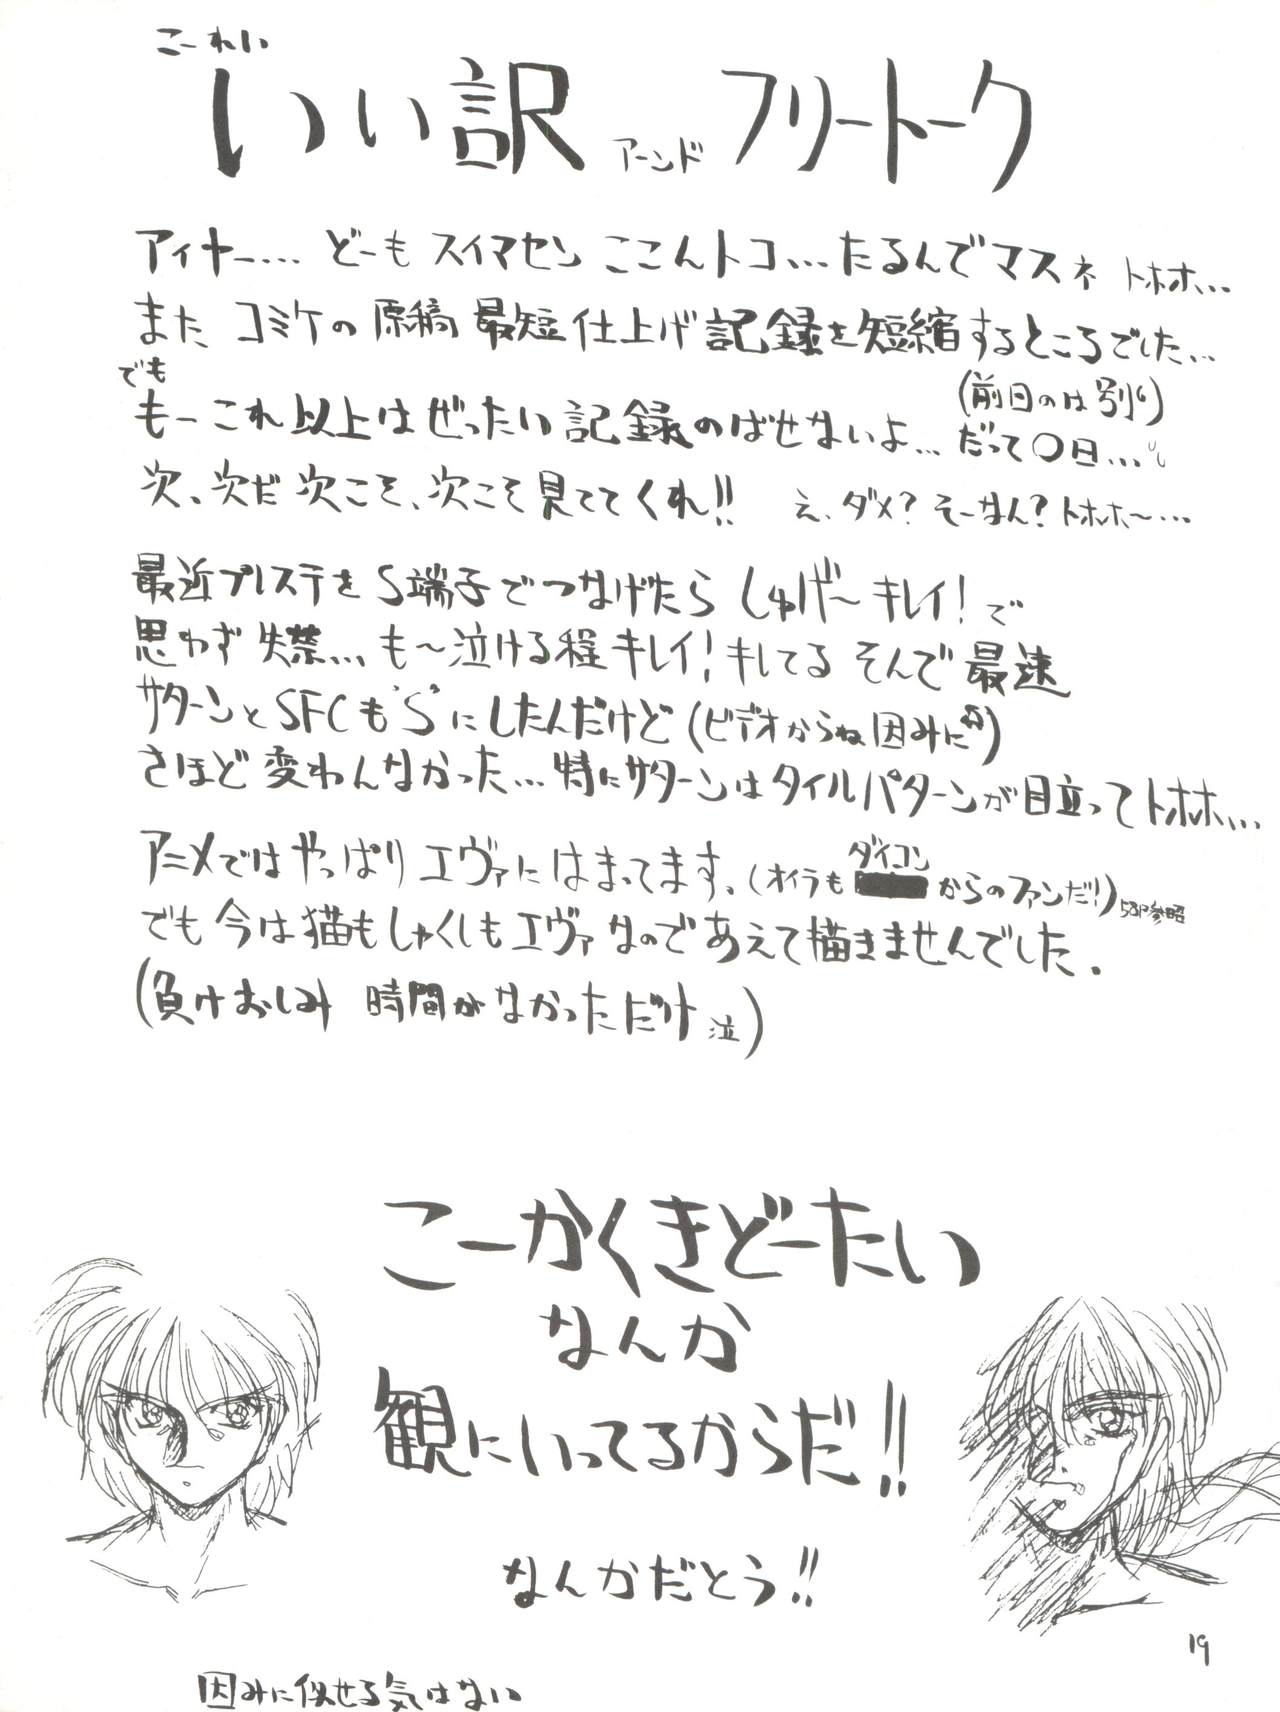 こーれい
いい訳 アーンド フリートーク
アィヤー… どーも スイマセン ここんトコ…たるんでマスネ トホホ…
また コミケの 原稿 最短 仕上げ 記録を短縮するところでした…
でも
もーこれ以上はぜったい記録のばせないよ… (前日のは別)
だって〇日…
次、次だ 次こそ、次こそ見ててくれ!! え、ダメ? そーなん? トホホ〜…
最近プレステをS端子でつなげたら しゅげ〜キレイ!で
思わず失禁… も〜泣ける程キレイ!キレてる そんで最速
サターンとSFCも"S"にしたんだけど(ビデオからね因みに)
さほど変わんなかった…特にサターンはタイルパターンが目立ってトホホ…
アニメではやっぱりエヴァにはまってます。(オイラも ダイコン からのファンだ!) 58P参照
でも今は猫もしゃくしもエヴァなのであえて描きませんでした。
(負けおしみ 時間がなかっただけ 泣)
こーかくきどーたい
なんか
観にいってるからだ!!
なんかだとう!!
19
因みに似せる気はない